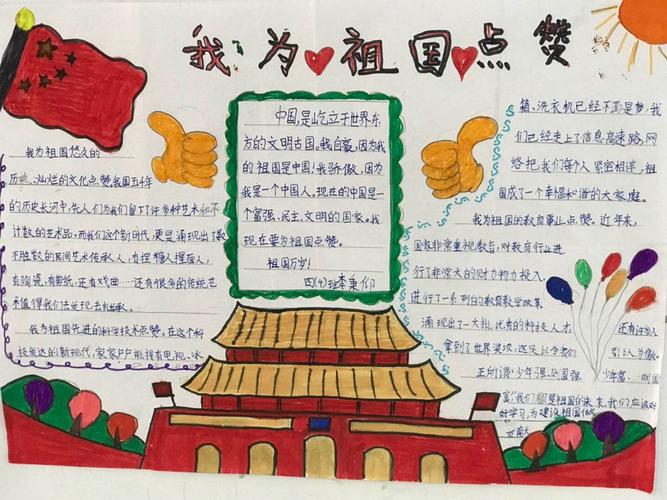 我为祖国点赞
我为祖国悠久的
历史、灿烂的文化点赞。我国五千年
的历史长河中,先人们为我们留下了许多种艺术和不
计数的艺术品。而我们这个新时代,更是涌现出了数
不胜数的民间艺术传承人,有捏糖人捏面人,
有陶瓷,有剪纸,还有戏曲……还有很多的传统艺
术值得我们去发现去传承。
我为祖国先进的科学技术点赞。在这个科
技发达的新现代,家家户户能拥有电视、冰
中国,是屹立于世界东
方的文明古国。我自豪,因为我
的祖国是中国!我骄傲,因为
我是一个中国人,现在的中国是一
个富强、民主、文明的国家。我
现在要为祖国点赞。
祖国万岁!
四(4)班李秉仰
箱、洗衣机已经不再是梦,我
们已经走上了信息高速路,网
络把我们每个人紧密相连,祖
国成了一个幸福和谐的大家庭。
我为祖国的教育事业点赞。近年来,
国家非常重视教育,对教育行业进
行了非常大的财力物力投入,
进行了一系列的教育教学改革
涌现出了一大批优秀的科技人才
还有许多人
拿到了世界奖项,这足以令我们
引以为傲。
正所谓“少年强、则国强
少年富、则国
富”我们都是祖国的未来,我们应该好
好学习,为建设祖国做
贡献